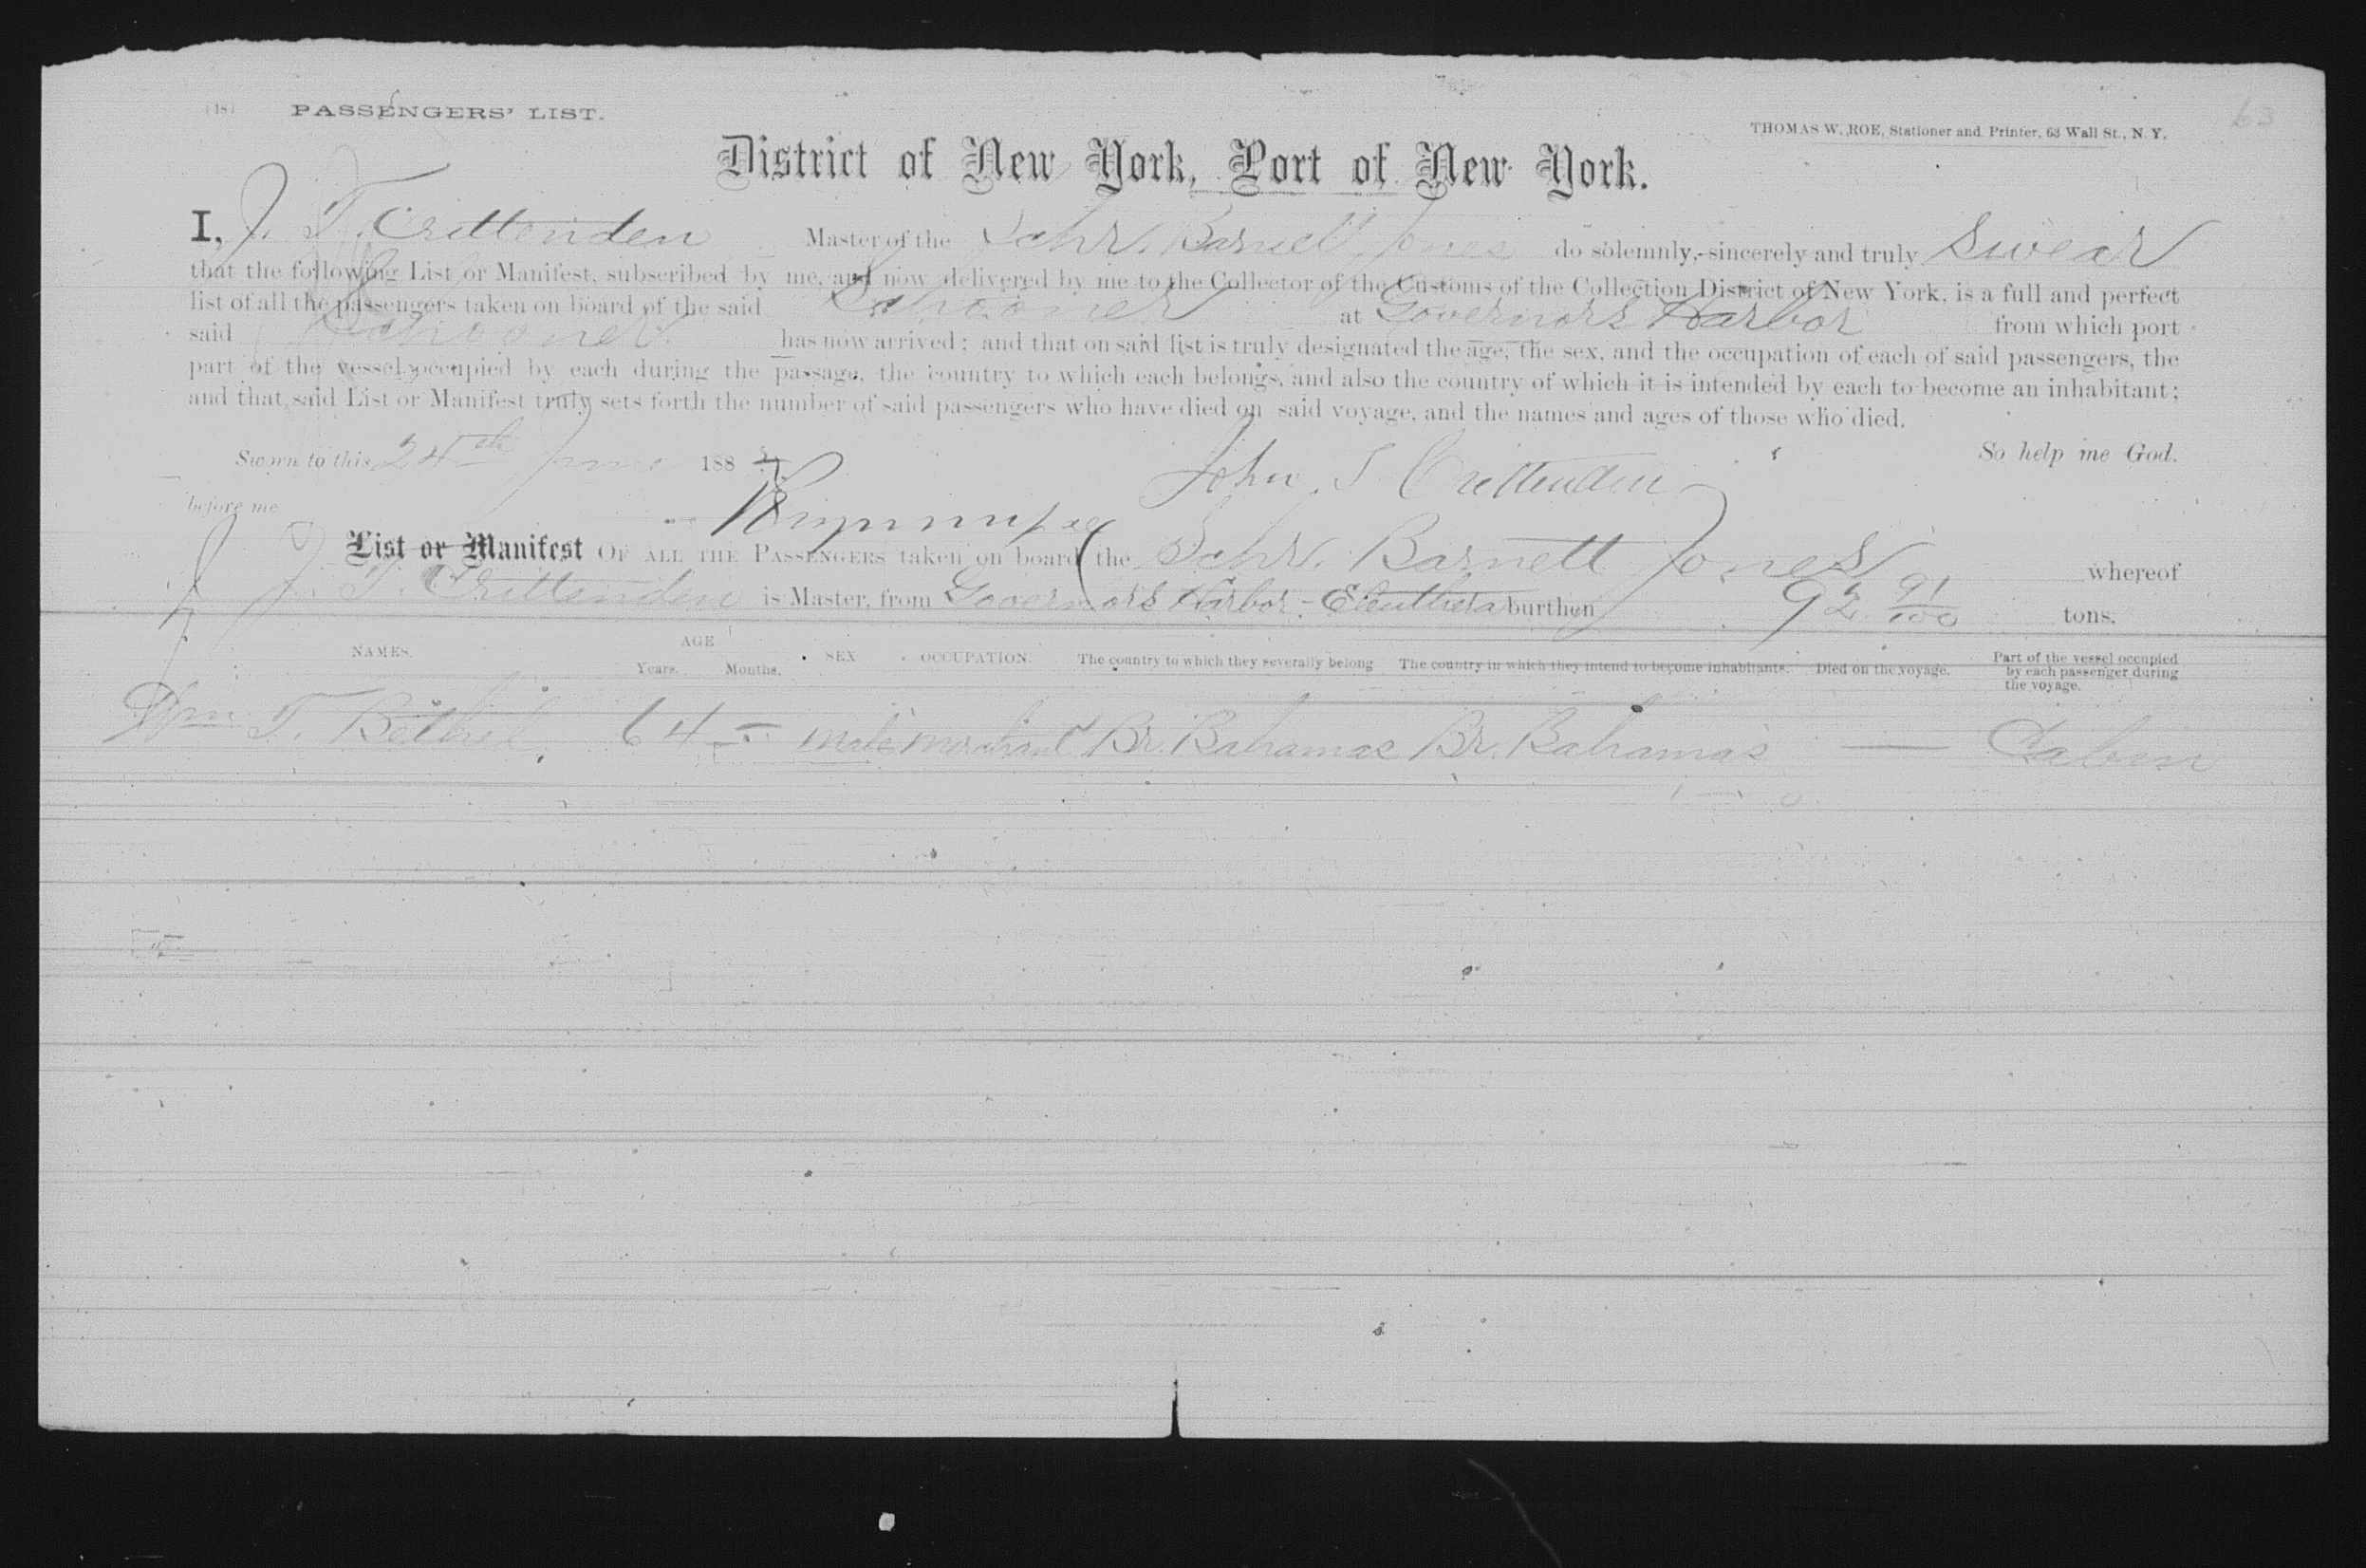 (18) PASSENGERS' LIST.
THOMAS W. ROE, Stationer and Printer, 63 Wall St., N. Y.
63
District of New York, Port of New York.
I, J. T. Crittenden Master of the Schr. Barnett Jones do solemnly, sincerely and truly swear
that the following List or Manifest, subscribed by me, and now delivered by me to the Collector of the Customs of the Collection District of New York, is a full and perfect
list of all the passengers taken on board of the said Schooner at Governors Harbor from which port
said Schooner has now arrived; and that on said list is truly designated the age, the sex, and the occupation of each of said passengers, the
part of the vessel occupied by each during the passage, the country to which each belongs, and also the country of which it is intended by each to become an inhabitant;
and that said List or Manifest truly sets forth the number of said passengers who have died on said voyage, and the names and ages of those who died.
Sworn to this 24th June 188 So help me God.
John T. Crittenden
before me
List or Manifest OF ALL THE PASSENGERS taken on board the Schr. Barnett Jones whereof
J. T. Crittenden is Master, from Governors Harbor - Eleuthera burthen 92 91/100 tons.
NAMES. AGE Years. Months. SEX OCCUPATION. The country to which they severally belong The country in which they intend to become inhabitants. Died on the voyage. Part of the vessel occupied by each passenger during the voyage.
Wm T. Bethel 64 - male merchant Br. Bahamas Br. Bahamas — Cabin